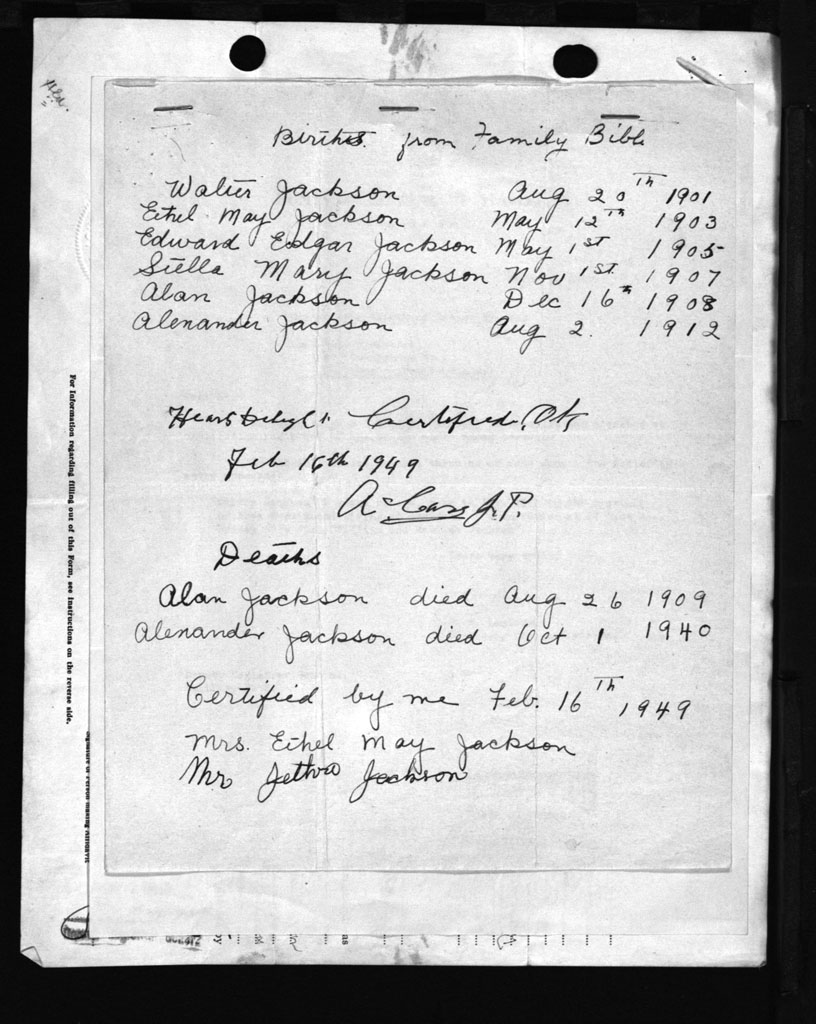 Births from Family Bible
Walter Jackson Aug 20th 1901
Ethel May Jackson May 12th 1903
Edward Edgar Jackson May 1st 1905
Stella Mary Jackson Nov 1st 1907
Alan Jackson Dec 16th 1908
Alenander Jackson Aug 2. 1912
Certified
Feb 16th 1949
J.P.
Deaths
Alan Jackson died Aug 26 1909
Alenander Jackson died Oct 1 1940
Certified by me Feb. 16th, 1949
Mrs. Ethel May Jackson
Mr Jackson
For Information regarding filling out of this Form, see Instructions on the reverse side.